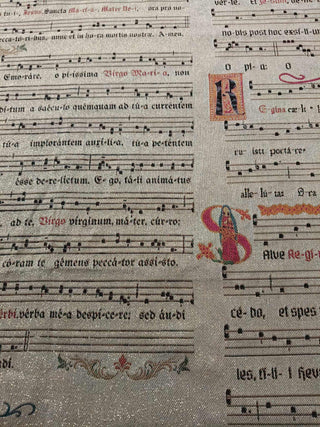 Jesus. Sancta Ma-rí-a, Mater De-i, ora pro no-
pecca-tó-ri-bus, nunc et in ho-ra mortis nostræ. A-men.
Emo-ráre, o pi-íssima Virgo Ma-rí-a, non
di-tum a sǽcu-lo quémquam ad tú-a curréntem
tú-a implorántem auxí-li-a, tú-a pe-téntem
ésse de-re-líctum. E-go, táli animátus
ad te, Virgo vírginum, má-ter, cúr-ro:
có-ram te gémens peccá-tor assí-sto.
vérba mé-a despí-ce-re; sed áu-di
di.
nobis post hoc exsí-li-um
o pí-a: O
R
E-gína cæ-li
ísti portá-re
alle-lú-ia: Ora
S
Alve Re-gí-
cé-do, et spes
les, fí-li-i Hevæ